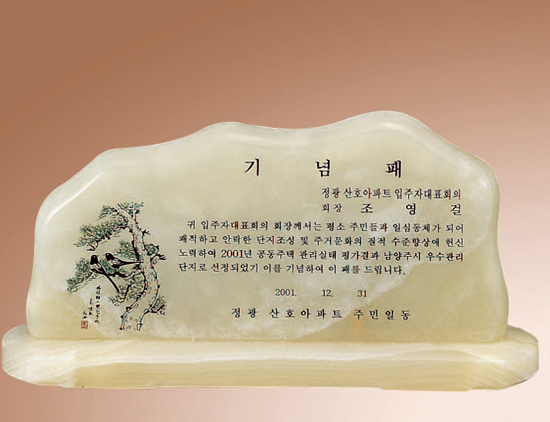 기 념 패
정광 산호아파트 입주자대표회의
회장 조 영 걸
귀 입주자대표회의 회장께서는 평소 주민들과 일심동체가 되어
쾌적하고 안락한 단지조성 및 주거문화의 질적 수준향상에 헌신
노력하여 2001년 공동주택 관리실태 평가결과 남양주시 우수관리
단지로 선정되었기 이를 기념하여 이 패를 드립니다.
2001. 12. 31
정광 산호아파트 주민일동